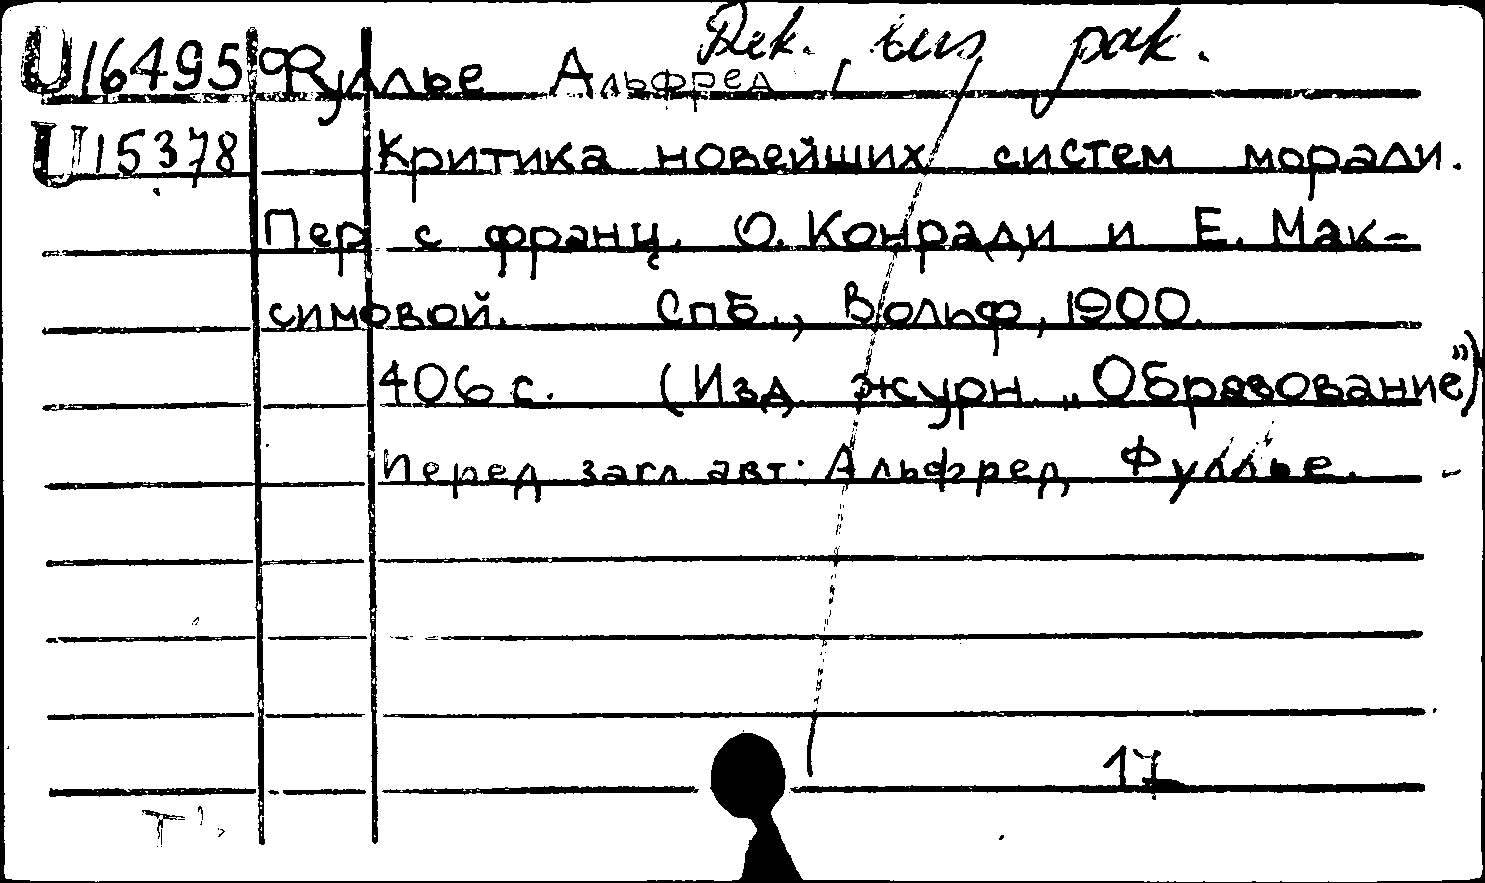 U16495 Фуллье Альфред
U15378 Критика новейших систем морали.
Пер с франц. О. Конради и Е. Мак-
симовой. СПБ., Вольф, 1900.
406 с. (Изд. журн. „Образование")
Перед загл. авт: Альфред Фуллье.
17